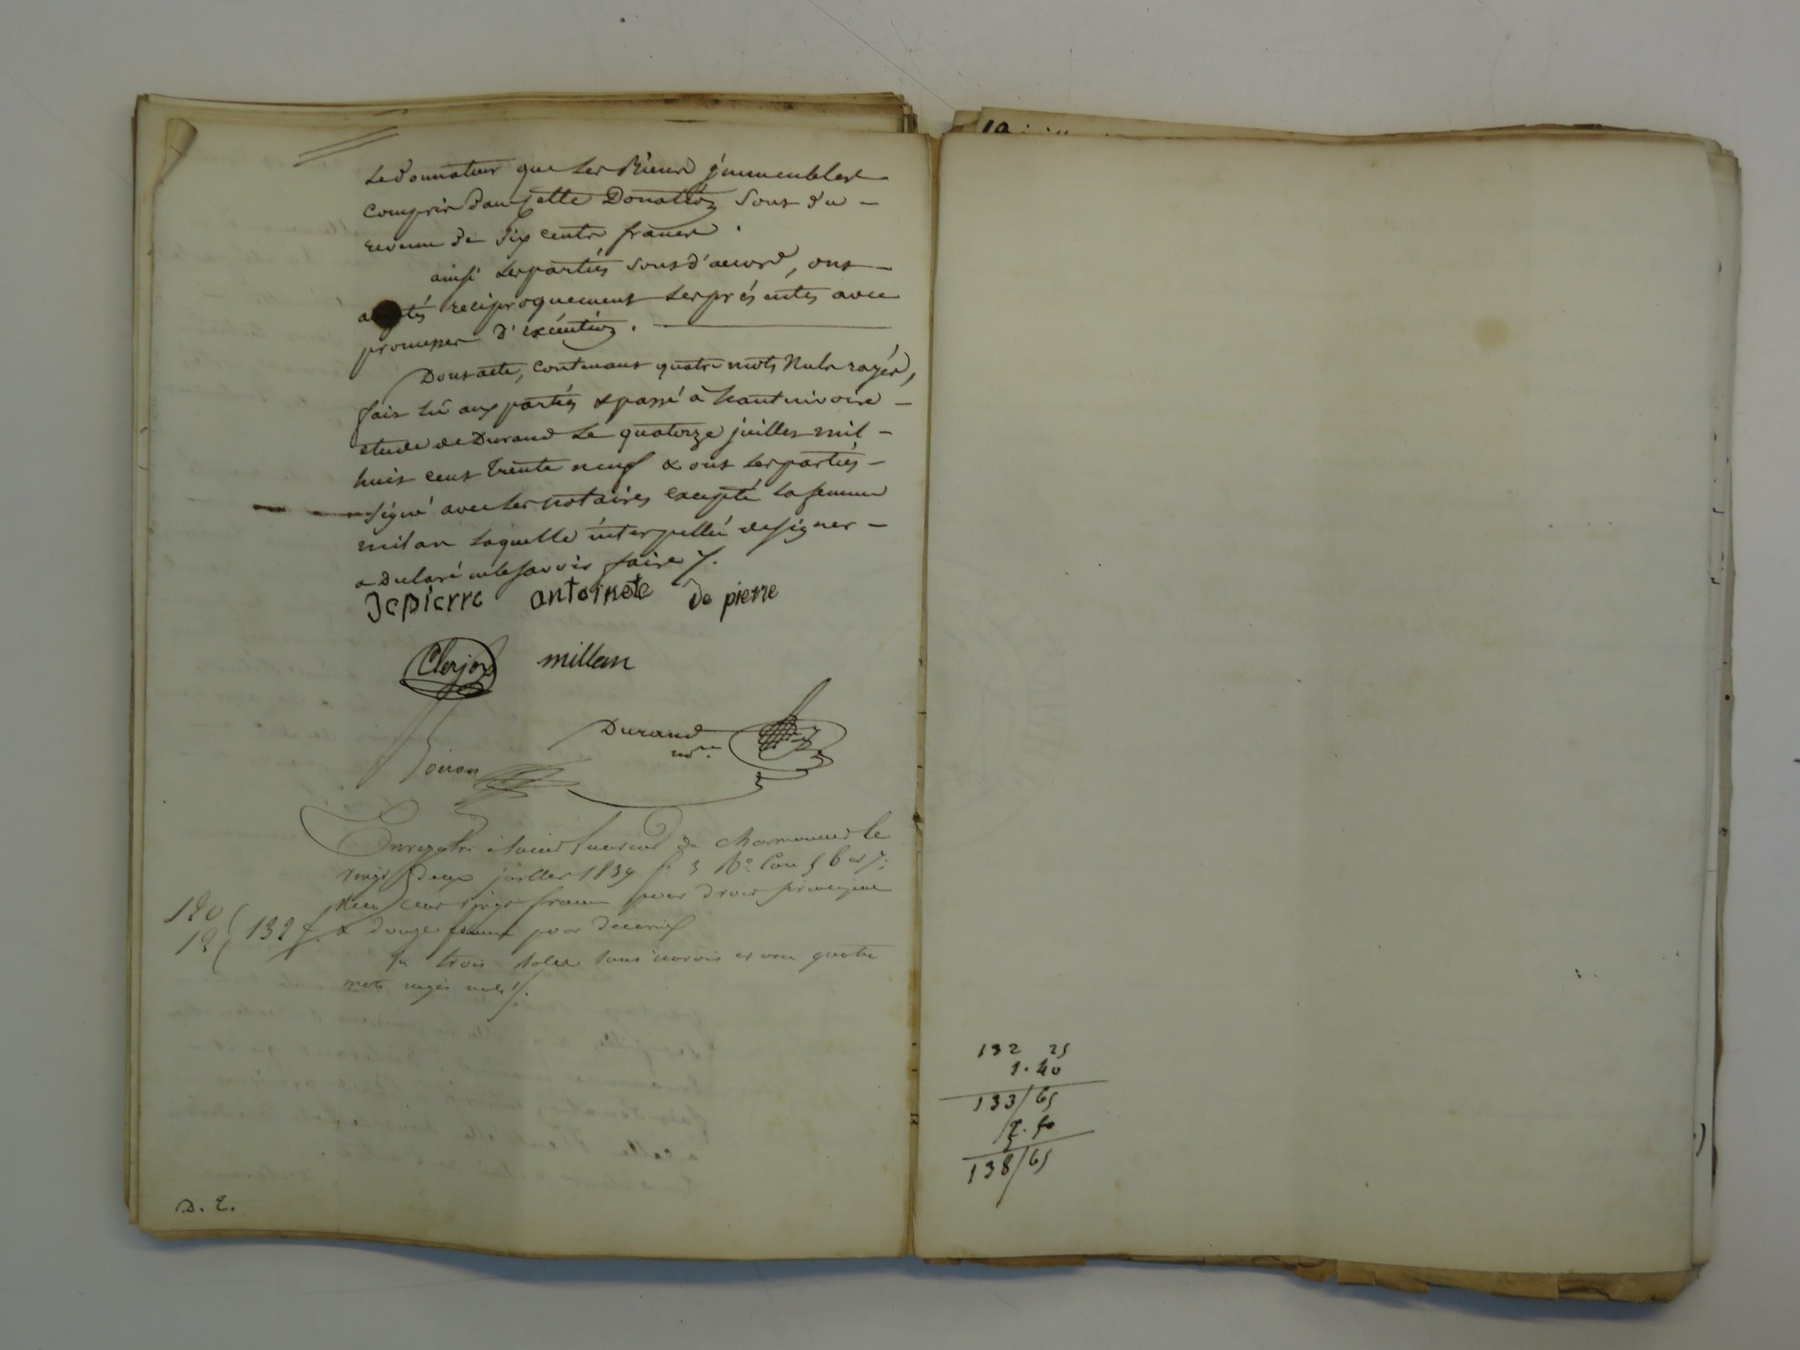 Le Donnateur que les Biens immeubles
compris dans cette Donation sont du
revenu de six cents francs.
ainsi les parties sont d'accord, ont
réciproquement les présentes avec
promesses d'exécution.
Dont acte, contenant quatre mots Nuls rayés,
fait lû aux parties & passé à hauterivoire
etude de Durand Le quatorze juillet mil
huit cent trente neuf & ont les parties
signé avec les notaires excepté la femme
milan laquelle interpellée de signer
a Declaré ne le savoir faire /.
Jepierre antoinete De pierre
Clerjon millan
Durand
nore.
Enregistré à Saint Laurent de chamousset le
vingt deux juillet 1839 fo 3 Vo Case 5 6 et 7.
Reçu cent vingt francs pour droit principal
& douze francs pour decime
120
12
132 f.
En trois rôles sans renvois et avec quatre
mots rayés nuls /.
D. 2.
132 25
1. 40
133/65
5. 50
138/65